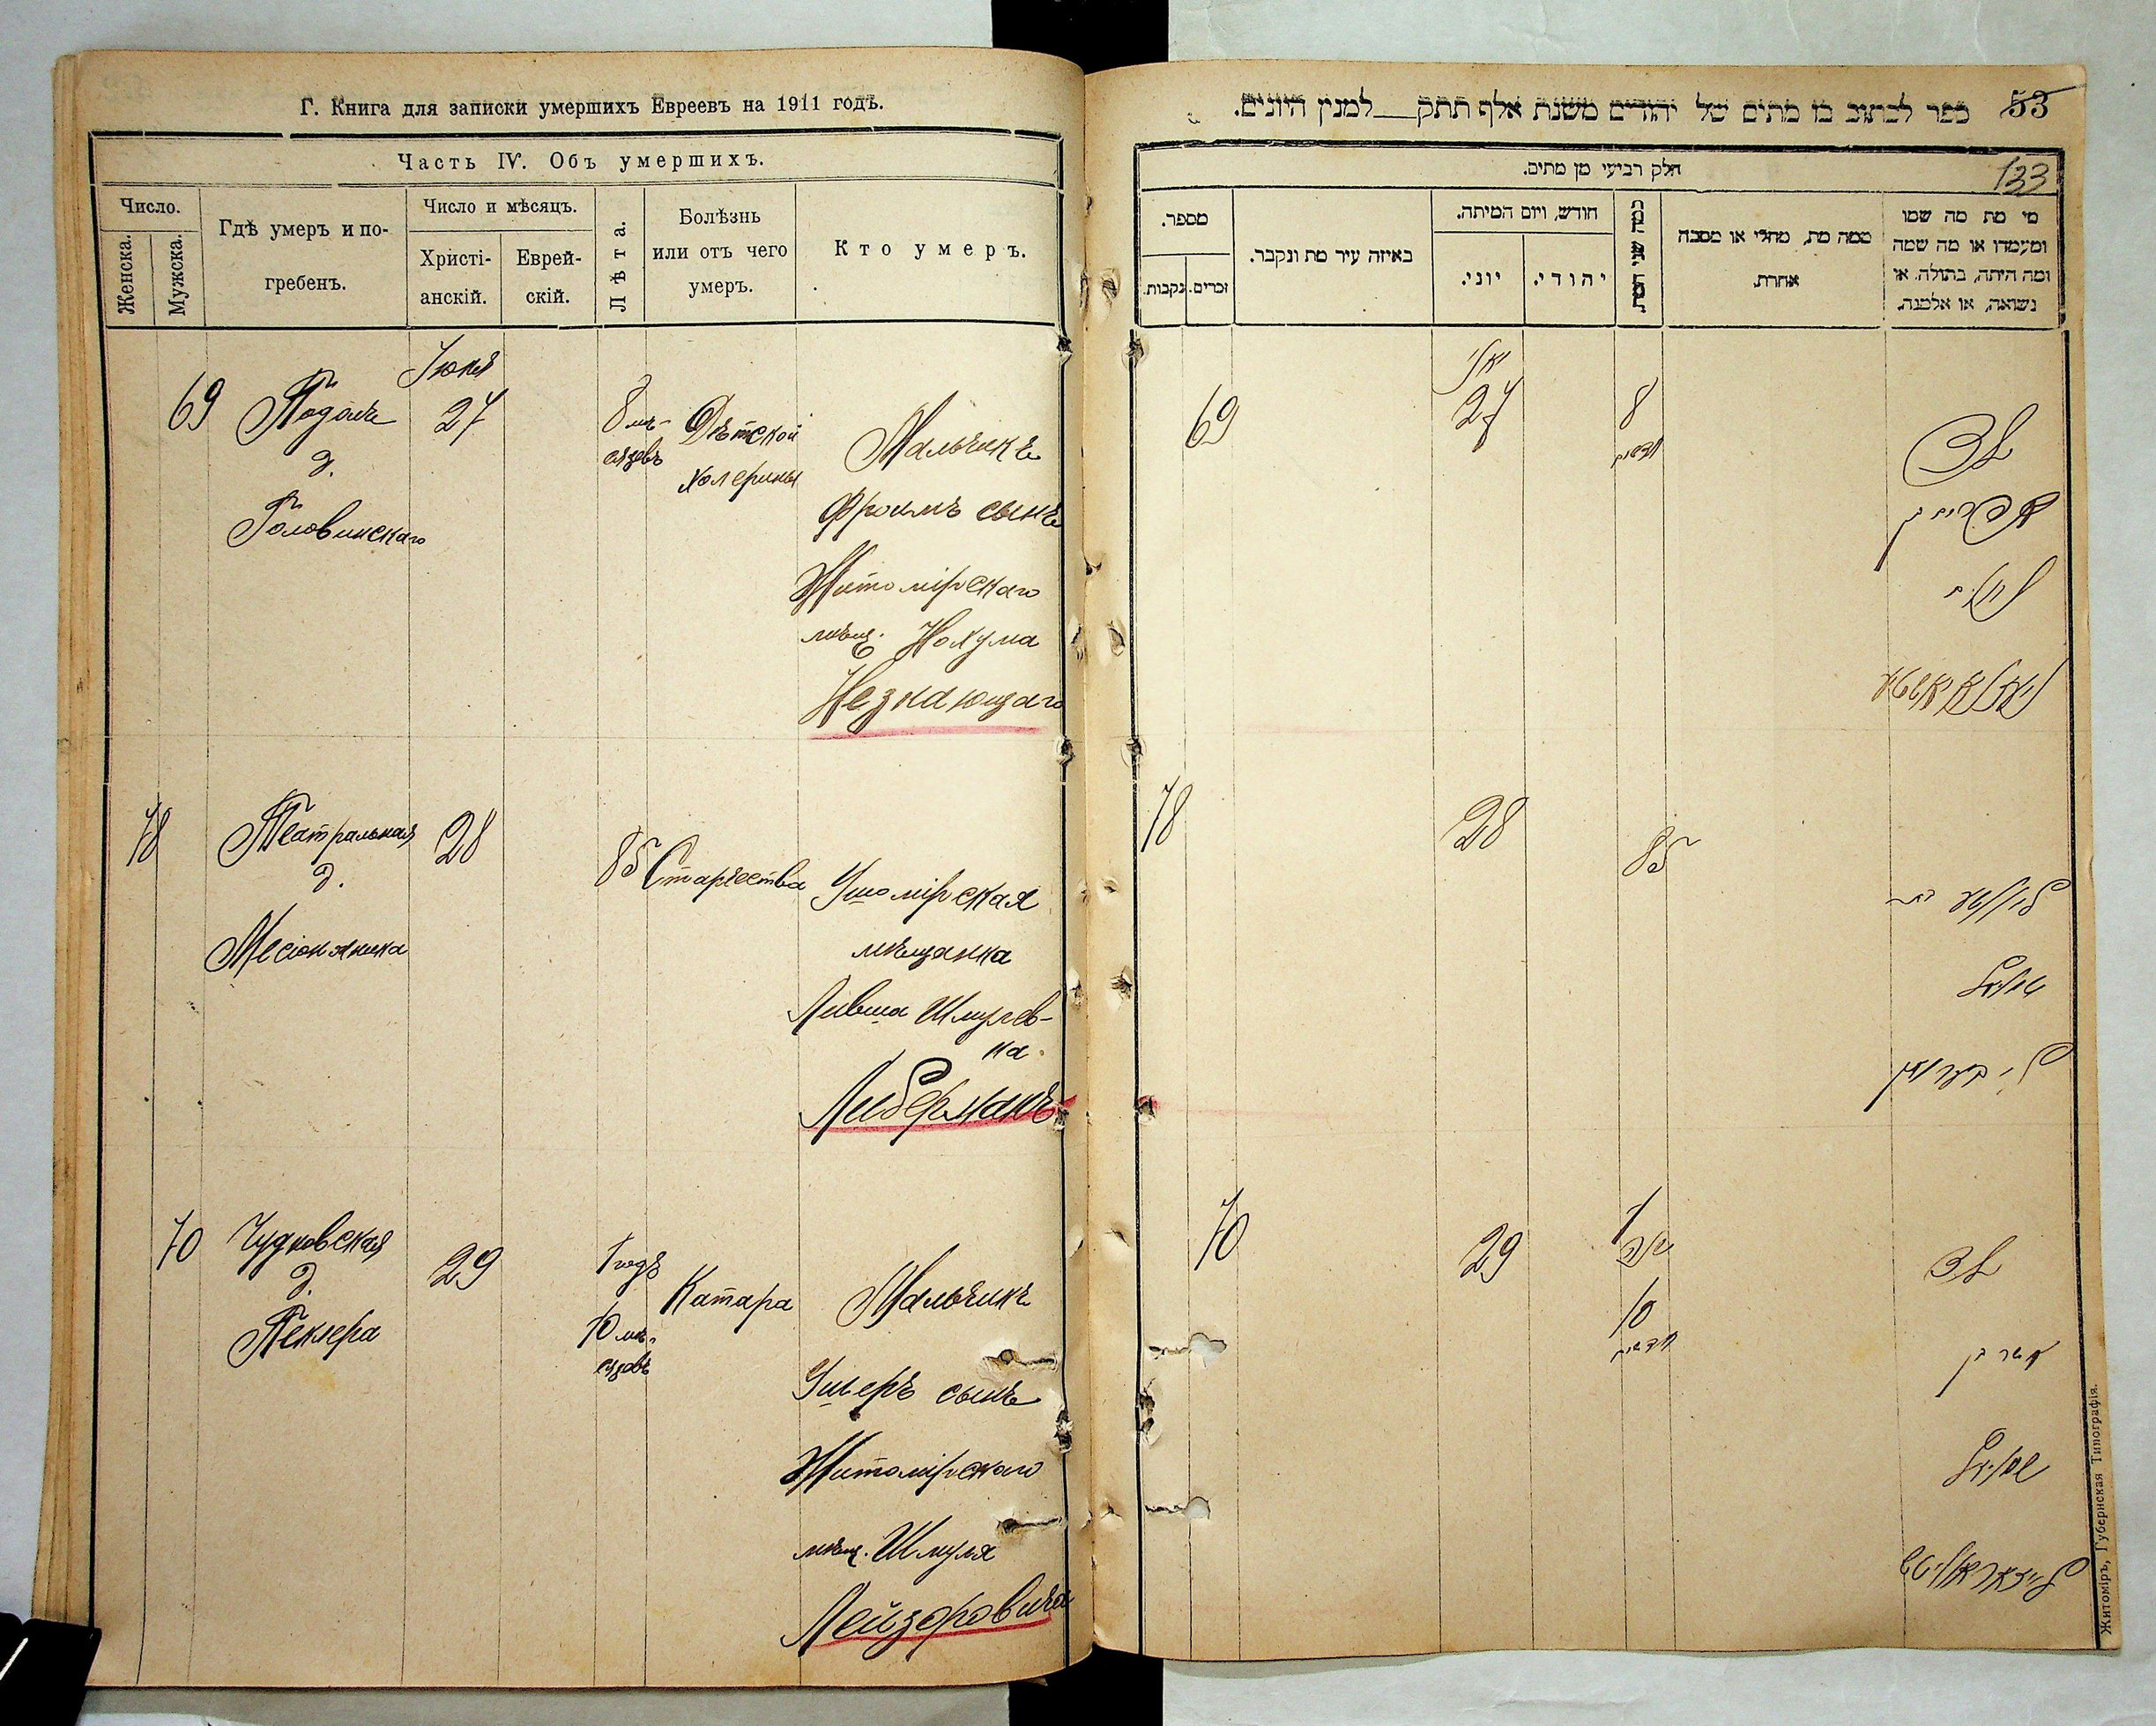 Г. Книга для записки умершихъ Евреевъ на 1911 годъ.
Часть IV. Объ умершихъ.
Число.
Женска.
Мужска.
Гдѣ умеръ и по-
гребенъ.
Число и мѣсяцъ.
Христі-
анскій.
Еврей-
скій.
Лѣта.
Болѣзнь
или отъ чего
умеръ.
Кто умеръ.
69
д.
Головинскаго
27
8 мѣ-
сяцевъ
Дѣтской
холерины
Мальчикъ
Фроимъ сынъ
Житомірскаго
мѣщ. Нохума
Незнающаго
78
Театральная
д.
28
85
Старчества
Ушомірская
мѣщанка
Ливша Шмулев-
на
Либерманъ
70
Чудновская
д.
29
1 годъ
10 мѣ-
сяцевъ
Катара
Мальчикъ
Ушеръ сынъ
Житомірскаго
мѣщ. Шмуля
Лейзеровича
ספר לכתוב בו מתים של יהודים משנת אלף תתק למנין היונים. 53
133
חלק רביעי מן מתים.
מספר.
נקבות.
זכרים.
באיזה עיר מת ונקבר.
חודש, ויום המיתה.
יוני.
יהודי.
כמה שני המת
ממה מת, מחלי או מסבה
אחרת.
מי מת מה שמו
ומעמדו או מה שמה
ומה היתה, בתולה, או
נשואה, או אלמנה.
69
27
8
חדשים
ילד
אפרים בן
נחום
78
28
85
שמואל
ליבערמאן
70
29
1
שנה
10
חדשים
ילד
אשר בן
שמואל
Житоміръ, Губернская Типографія.